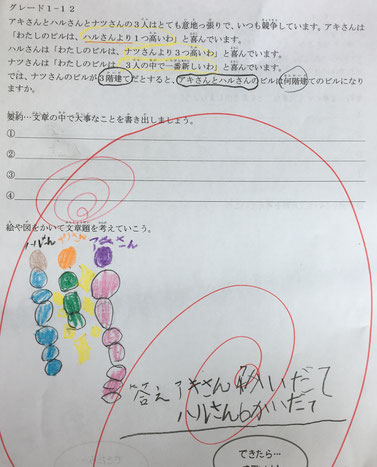 グレード1-12
アキさんとハルさんとナツさんの3人はとても意地っ張りで、いつも競争しています。アキさんは
「わたしのビルは、ハルさんより1つ高いわ」と喜んでいます。
ハルさんは「わたしのビルは、ナツさんより3つ高いわ」と喜んでいます。
ナツさんは「わたしのビルは、3人の中で一番新しいわ」と喜んでいます。
では、ナツさんのビルが3階建てだとすると、アキさんとハルさんのビルは何階建てのビルになり
ますか。
要約…文章の中で大事なことを書き出しましょう。
①
②
③
④
絵や図をかいて文章題を考えていこう。
ハルさん ナツさん アキさん
答え アキさん7かいだて
ハルさん6かいだて
できたら…